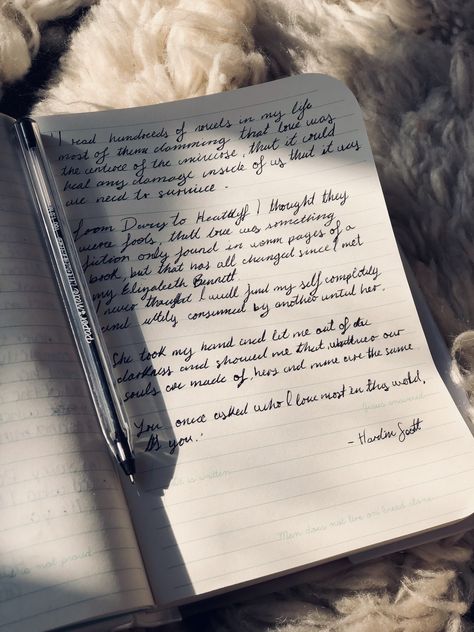 "I read hundreds of novels in my life
most of them damming that love was
the centere of the universe, that it could
heal any damage inside of us that it was
we need to survive.
From Darcy to Heathlyf I thought they
were fools, that love was something
fiction only found in worn pages of a
book, but that has all changed since I met
my Elizabeth Bennett.
I never thought I will find my self completly
and utterly consumed by another until her.
She took my hand and let me out of the
darkness and showed me that whatever our
souls are made of, hers and mine are the same
You once asked who I love most in this world,
It's you."
- Hardin Scott
Jesus answered
is written
Men does not live on bread alone
is not proud